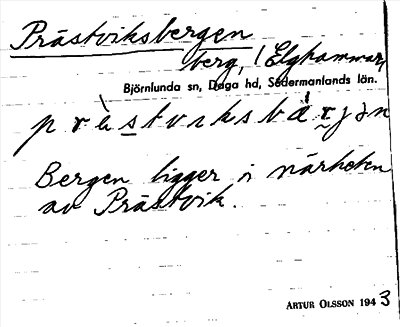 Prästviksbergen
berg, (Elghammar)
Björnlunda sn, Daga hd, Södermanlands län.
Bergen ligger i närheten
av Prästvik.
ARTUR OLSSON 1943